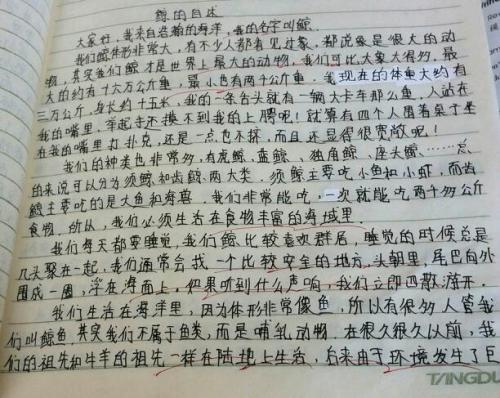 鲸的自述
大家好，我来自浩瀚的海洋，我的名字叫鲸、
我们鲸体形非常大，有不少人都看见过象，都说象是很大的动
物，其实我们鲸才是世界上最大的动物，我们可比大象大得多，最
大的约有十六万公斤重，最小也有两千公斤重。我现在的体重大约有
三万公斤，身长约十五米，我的一条舌头就有一辆大卡车那么重，人站在
我的嘴里，举起手还摸不到我的上腭呢！就算有四个人围着桌子坐
在我的嘴里打扑克，还是一点也不挤，而且还显得很宽敞呢！
我们的种类也非常多，有虎鲸、蓝鲸、独角鲸、座头鲸、……总
的来说可以分为须鲸和齿鲸，两大类。须鲸主要吃小鱼和小虾，而齿
鲸主要吃的是大鱼和海兽。我们非常能吃，一次就能吃两千多公斤
食物。所以，我们必须生活在食物丰富的海域里．
我们每天都要睡觉，我们鲸比较喜欢群居，睡觉的时候总是
几头聚在一起，我们通常会找一个比较安全的地方，头朝里，尾巴向外
围成一圈，浮在海面上，如果听到什么声响，我们立即四散游开．
我们生活在海洋里，因为体形非常像鱼，所以有很多人管我
们叫鲸鱼，其实我们不属于鱼类，而是哺乳动物．在很久很久以前，我
们的祖先和牛羊的祖先一样在陆地上生活，后来由于环境发生了巨
TANGDU